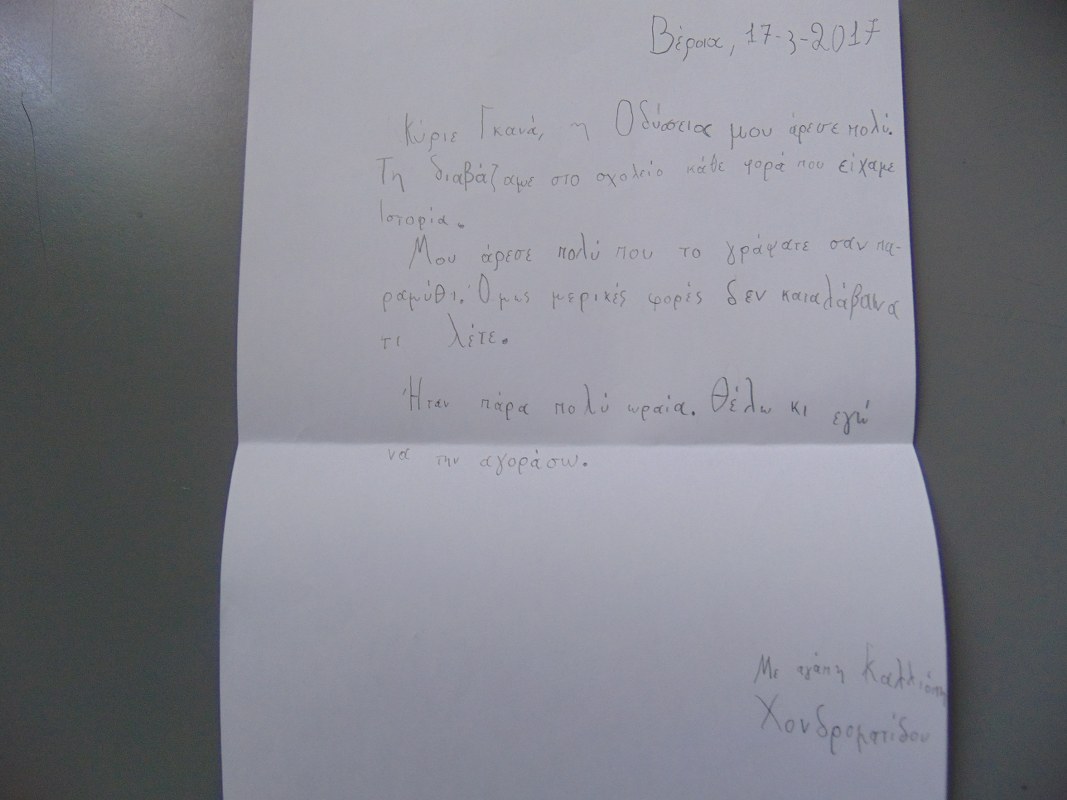 Βέροια, 17-3-2017
Κύριε Γκανά, η Οδύσσεια μου άρεσε πολύ.
Τη διαβάζαμε στο σχολείο κάθε φορά που είχαμε
Ιστορία.
Μου άρεσε πολύ που το γράψατε σαν πα-
ραμύθι. Όμως μερικές φορές δεν καταλάβαινα
τι λέτε.
Ήταν πάρα πολύ ωραία. Θέλω κι εγώ
να την αγοράσω.
Με αγάπη Καλλιόπη